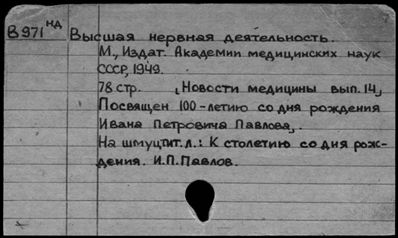 В971 нд Высшая нервная деятельность.
М., Издат. Академии медицинских наук
СССР, 1949.
78 стр. „Новости медицины вып. 14„
Посвящен 100-летию со дня рождения
Ивана Петровича Павлова„.
На шмуцтит. л.: К столетию со дня рож-
дения. И.П. Павлов.